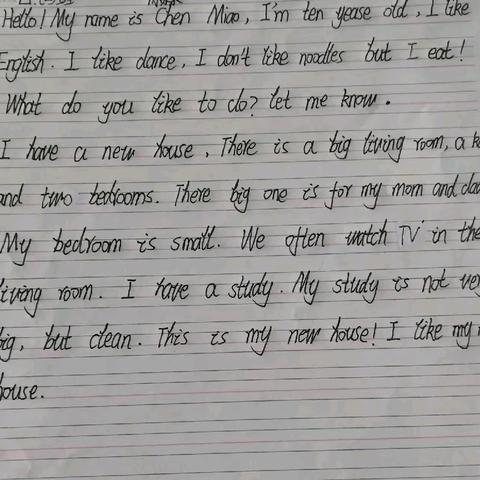 Hello! My name is Chen Miao, I'm ten yease old, I like
English. I like dance, I don't like noodles but I eat!
What do you like to do? let me know.
I have a new house, There is a big living room, a
and two bedrooms. There big one is for my mom and
My bedroom is small. We often watch TV in the
living room. I have a study. My study is not
big, but clean. This is my new house! I like my
house.